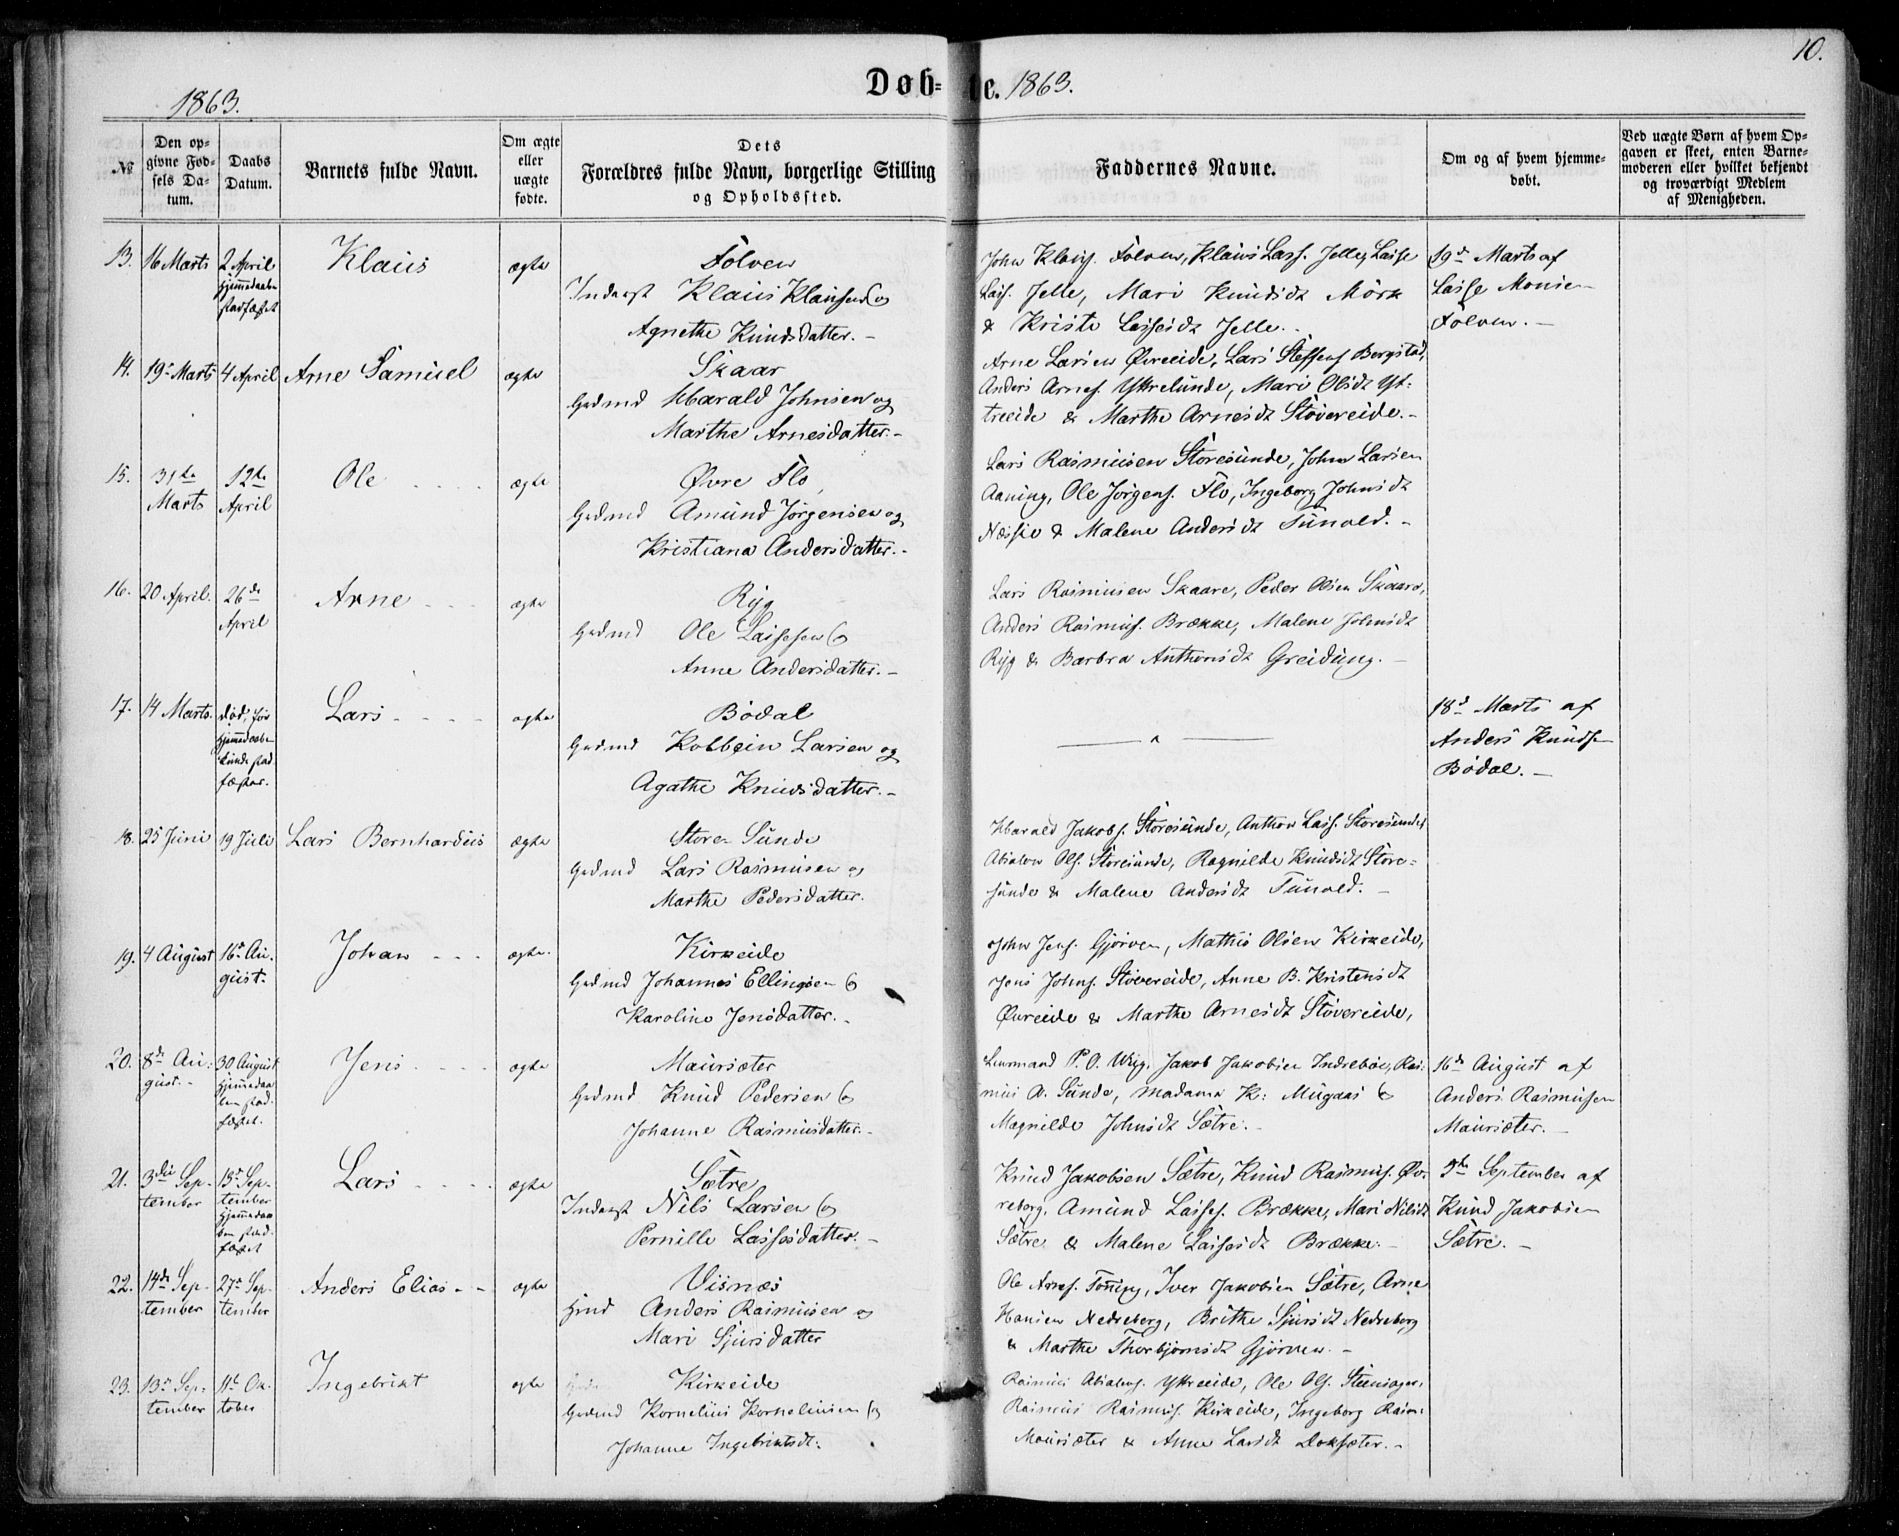 10.
1863.
Døbte. 1863.
№
Den opgivne Fødsels Datum.
Daabs Datum.
Barnets fulde Navn.
Om ægte eller uægte fødte.
Dets Forældres fulde Navn, borgerlige Stilling og Opholdssted.
Faddernes Navne.
Om og af hvem hjemmedøbt.
Ved uægte Børn af hvem Opgaven er skeet, enten Barnemoderen eller hvilket bekjendt og troværdigt Medlem af Menigheden.
13. 16 Marts 2 April Hjemmedaaben stadfæstet
Klaus
ægte
Folven
Inderst Klaus Klausen og
Agnethe Knudsdatter.-
John Klaus. Folven, Klaus Lass. Jelle, Lasse
Lass. Jelle, Mari Knudsdt Mörk
& Kristi Lassesdt Jelle.-
19d Marts af
Lasse Monsen
Folven.-
14. 19d Marts 4 April
Arne Samuel
ægte
Skaar
Gmd Harald Johnsen og
Marthe Arnesdatter.-
Arne Larsen Øvreeide, Lars Steffens Bergstad,
Anders Arnes. Ytrelunde, Mari Olsdt Yt-
treeide & Marthe Arnesdt Stövereide.-
15. 31te Marts 12te April
Ole
ægte
Øvre Flo
Gmd Amund Jørgensen og
Kristiana Andersdatter.-
Lars Rasmusen Storesunde, John Larsen
Aaning, Ole Jörgens. Flo, Ingeborg Johnsdt
& Malene Andersdt Tunold.-
16. 20 April. 26de April
Arne
ægte
Ryg
Gmd Ole Lassesen og
Anne Andersdatter.-
Lars Rasmusen Skaare, Peder Olsen Skaare,
Anders Rasmus. Brække, Malene Johnsdt
Ryg & Barbra Anthonsdt Greidung.-
17. 14 Marts. død, før Hjemmedaaben kunde stadfæstes.
Lars
ægte
Bödal
Gmd Kolbein Larsen og
Agathe Knudsdatter.-
18d Marts af
Anders Knuds
Bödal.-
18. 25 Juni 19 Juli
Lars Bernhardus
ægte
Store Sunde
Gmd Lars Rasmusen og
Marthe Pedersdatter.
Harald Jakobs. Storesunde, Anthon Lass. Storesunde,
Absalon Ols. Storesunde, Ragnilde Knudsdt Store-
sunde & Malene Andersdt Tunold.-
19. 4 August 16d August.
Johan
ægte.
Kirkeide
Gmd Johannes Ellingsen og
Karoline Jensdatter.-
John Jens. Gjørven, Mathis Olsen Kirkeide,
Jens Johns. Stövereide, Anne B. Kristensdt
Øvreeide & Marthe Arnesdt Stövereide,
20. 8de August.- 30 August Hjemmedaaben stadfæstet.
Jens
ægte
Maursæter
Gmd Knud Pedersen og
Johanne Rasmusdatter.-
Lensmand P. O. Wiig, Jakob Jakobsen Indrebøe, Ras-
mus A. Sunde, Madame K: Mugaas og
Magnilde Johnsdt Sætre.-
16de August af
Anders Rasmusen
Maursæter.-
21. 3die September 13d September Hjemmedaaben stadfæstet
Lars
ægte
Sætre
Inderst Nils Larsen og
Pernille Lassesdatter.-
Knud Jakobsen Sætre, Knud Rasmus. Øv-
reberg, Amund Lasses. Brække, Mari Nilsdt
Sætre & Malene Lassesdt Brække.-
September af
Knud Jakobsen
Sætre.-
22. 14de September 27d September
Anders Elias
ægte
Visnæs
Hmd Anders Rasmusen og
Mari Sjursdatter
Ole Arnes. Tonning, Iver Jakobsen Sætre, Arne
Hansen Nedreberg, Brithe Sjursdt Nedreberg
& Marthe Thorbjørnsdt Gjörven.-
23. 13d September 11te Oktober
Ingebrikt
ægte
Kirkeide
Gmd Kornelius Korneliusen og
Johanne Ingebriktsdt:
Rasmus Absalons. Ytreeide, Ole Ols. Steensager,
Rasmus Rasmus. Kirkeide, Ingeborg Rasm:
Maursæter & Anne Larsdt Doksæter.-